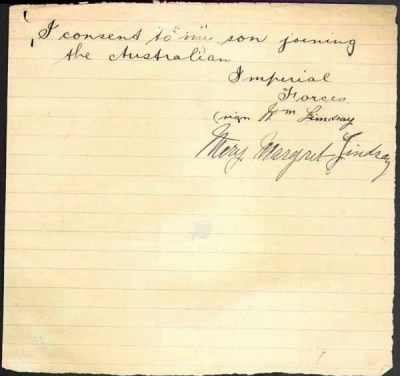 I consent to mi son joining
the Australian
Imperial
Forces
(sign Wm Lindsay
Mary Margret Lindsay